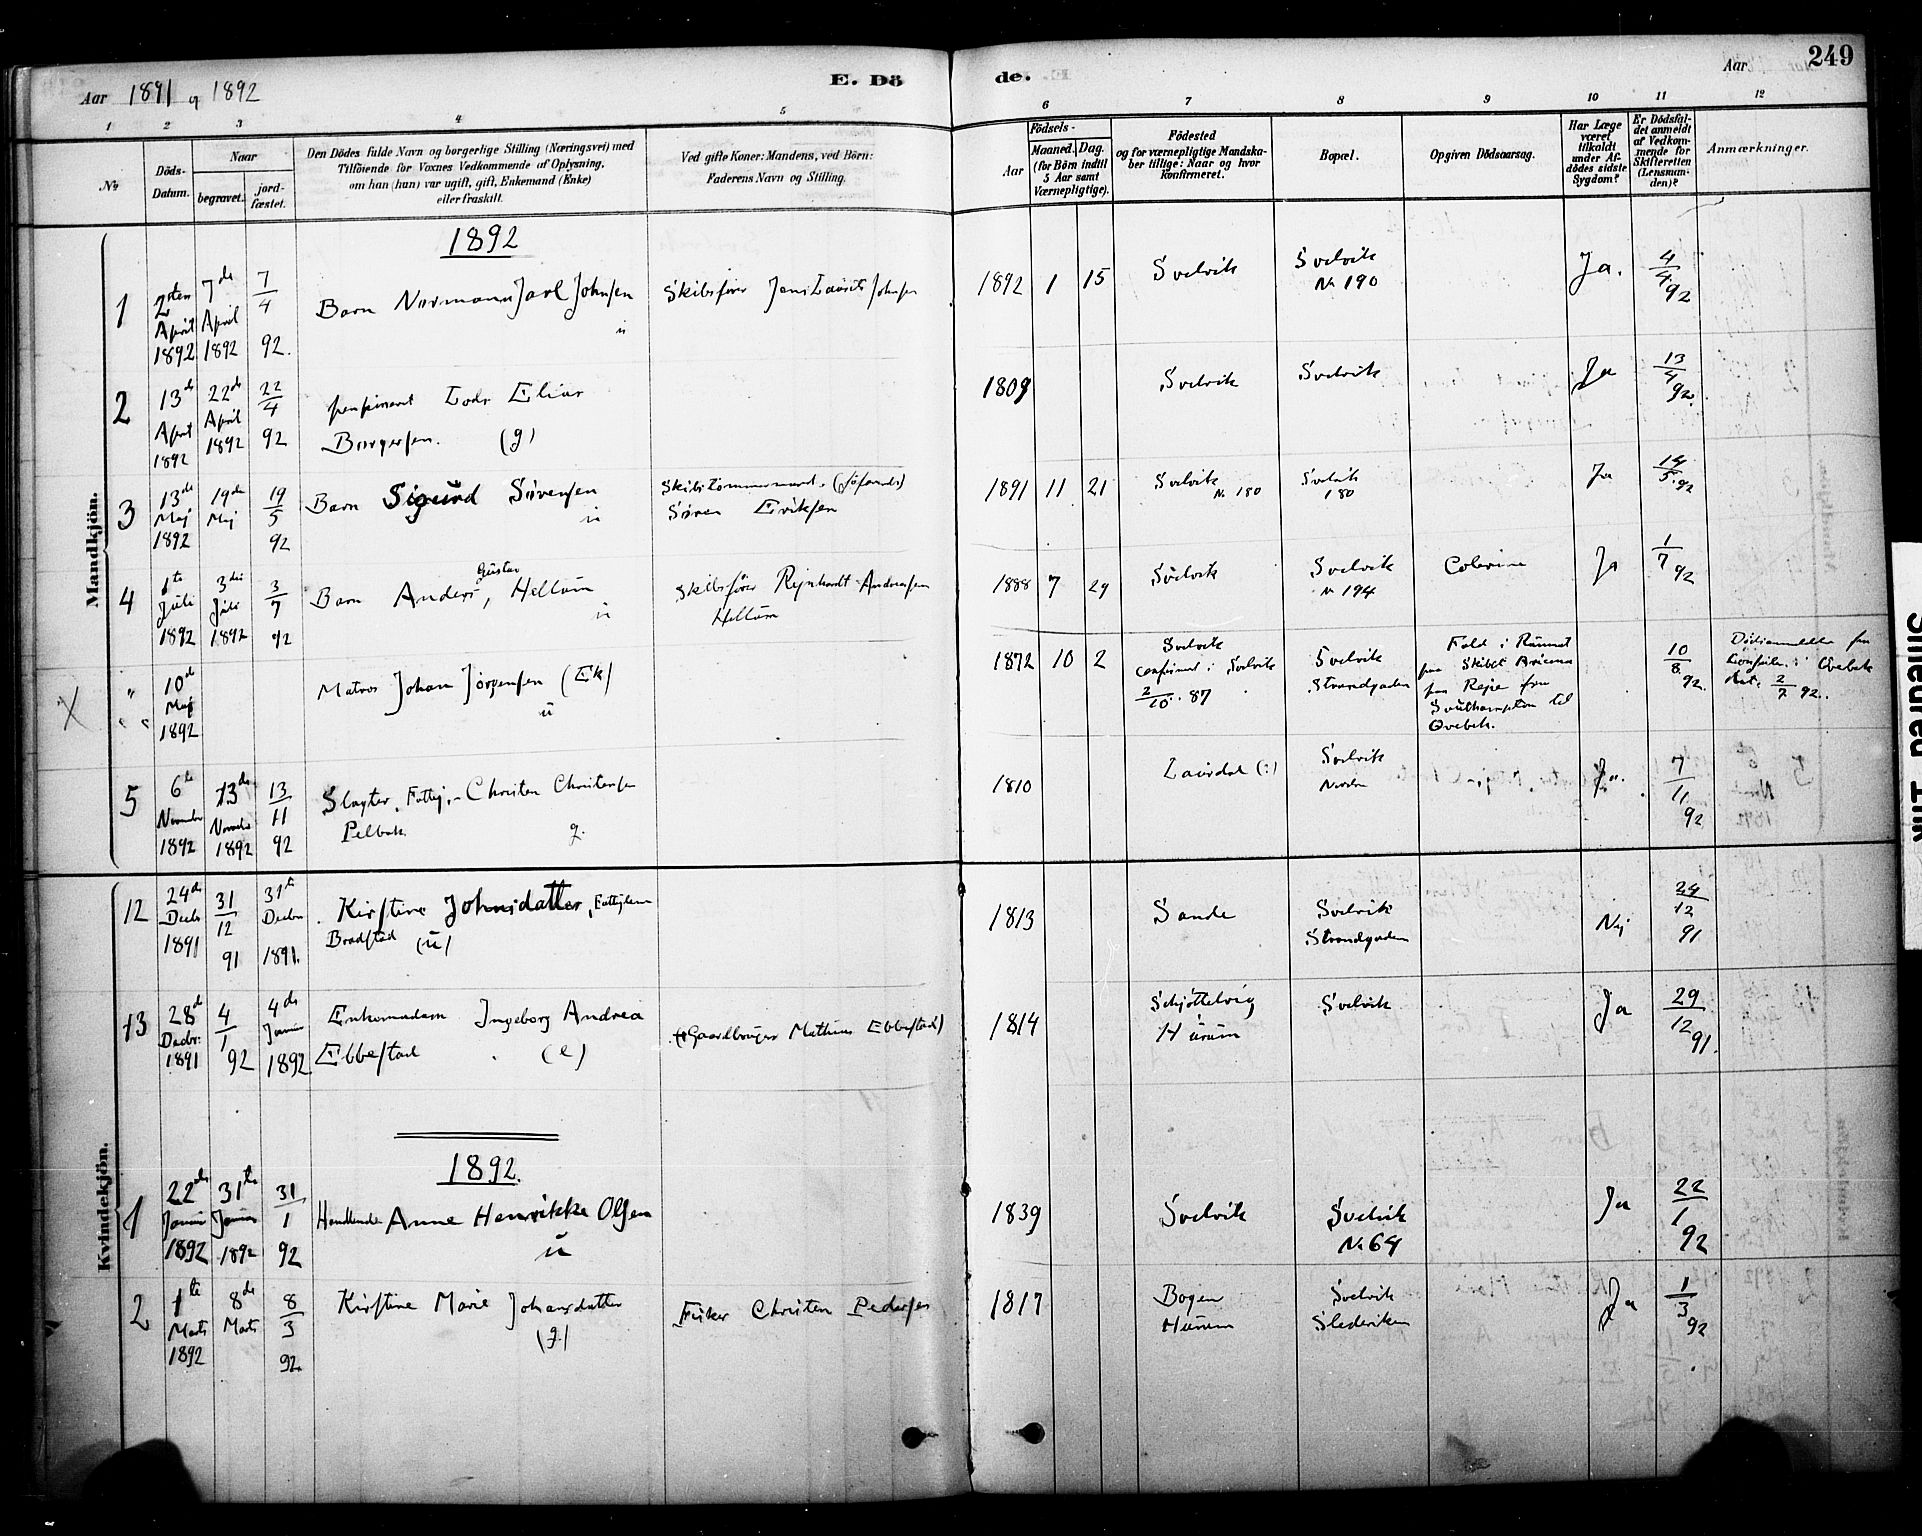 Aar 1891 og 1892
E. Dö
de.
Aar
249
1 2 3 4 5 6 7 8 9 10 11 12
No
Döds-
Datum.
Naar
begravet.
jord-
fæstet.
Den Dödes fulde Navn og borgerlige Stilling (Næringsvei) med
Tilföiende for Voxnes Vedkommende af Oplysning,
om han (hun) var ugift, gift, Enkemand (Enke)
eller fraskilt.
Ved gifte Koner: Mandens, ved Börn:
Faderens Navn og Stilling.
Födsels-
Aar
Maaned.
Dag.
(for Börn indtil
5 Aar samt
Værnepligtige).
Födested
og for værnepligtige Mandska-
ber tillige: Naar og hvor
Konfirmeret.
Bopæl.
Opgiven Dödsaarsag.
Har Læge
været
tilkaldt
under Af-
dödes sidste
Sygdom?
Er Dödsfal-
det anmeldt
af Vedkom-
mende for
Skifteretten
(Lensman-
den)?
Anmærkninger.
Mandkjön.
1892
1
2den April 1892
7de April 1892
7/4 92.
Barn Normann Jarl Johnsen
u
Skibsfører Jens Laurits Johnsen
1892 1 15
Svelvik
Svelvik
No 190
Ja.
4/4 92
2
13de April 1892
22de April 1892
22/4 92
Lods Elias
Borgersen. (g)
1809
Svelvik
Svelvik
Ja
13/4 92.
3
13de Maj 1892
19de Maj
19/5 92
Barn Sigurd Sörensen
u
Skibstømmermand
Søren Eriksen
1891 11 21
Svelvik
No 180
Svelvik
180
Ja
14/5 92
4
1te Juli 1892
3die Juli 1892
3/7 92
Barn Anders Gustav, Hellum
u
Skibsfører Rejnhardt Andreasen
Hellum
1888 7 29
Svelvik
Svelvik
No 194
Colerine
Ja
1/7 92
X
" " "
10de Maj 1892
Matros Johan Jörgensen (Ek)
u
1872 10 2
Svelvik
confirmert i Svelvik
2/10. 87
Svelvik
Strandgaden
Fald i Rummet
paa Skibet
paa Rejse fra
Southampton til
Qvebek.
10/8 92.
fra
i Qvebek
dat. 2/7 92.
5
6te November 1892
13de Novebr 1892
13/11 92
Christen Christensen
g.
1810
Laurdal (:)
Svelvik
Ja.
7/11 92
Kvindekjön.
12
24de Decbr 1891
31/12 91
31te Decbr 1891.
Kirstine Johnsdatter, Fattiglem
Bradstad (u)
1813
Sande
Svelvik
Strandgaden
Nej
24/12 91
13
28de Decbr. 1891
4/1 92
4de Januar 1892
Enkemadam Ingeborg Andrea
Ebbestad (e)
Gaardbruger Mathias Ebbestad)
1814
Hurum
Svelvik
Ja
29/12 91.
1892.
1
22de Januar 1892
31te Januar 1892
31/1 92
Handlende Anne Henrikke Olsen
u
1839
Svelvik
Svelvik
No 64
Ja
22/1 92
2
1te Marts 1892
8de Marts
8/3 92.
Kirstine Marie Johansdatter
(g)
Fisker Christen Pedersen
1817
Bogen
Hurum
Svelvik
Ja
1/3 92